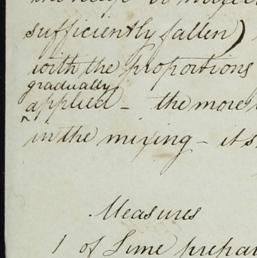 sufficiently fallen)
with the proportions
gradually
applied - the more
in the mixing - its
Measures
1 of Lime prepar